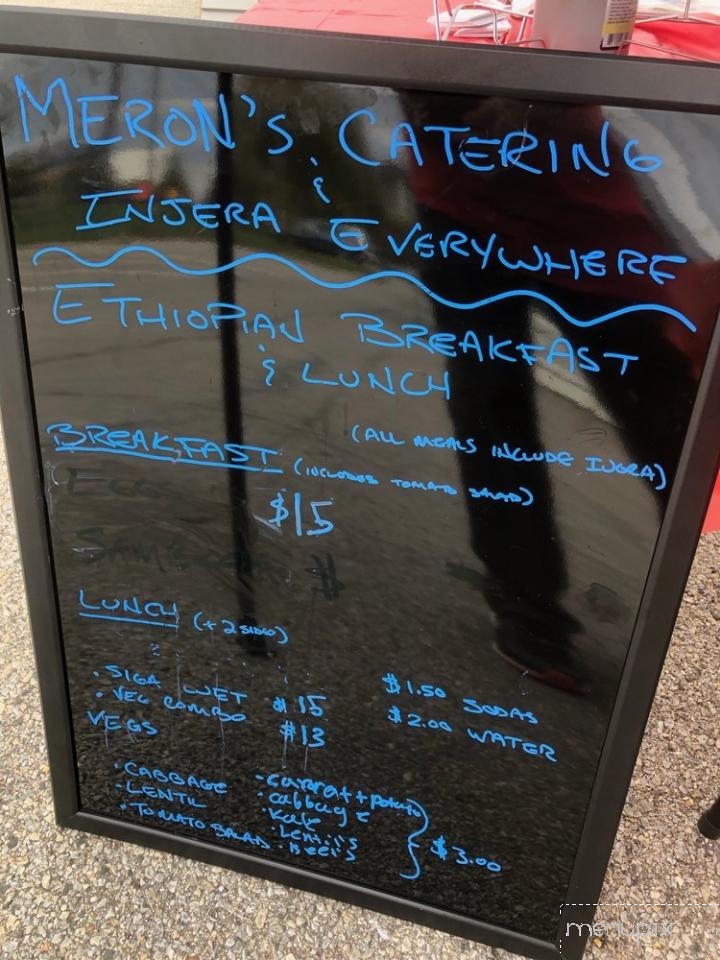 MERON'S CATERING
&
INJERA EVERYWHERE
ETHIOPIAN BREAKFAST
& LUNCH
(ALL MEALS INCLUDE INJERA)
BREAKFAST (INCLUDES TOMATO SALAD)
$15
LUNCH (+ 2 SIDES)
• SIGA WET $15
• VEG COMBO $13
$1.50 SODAS
$2.00 WATER
VEGS
• CABBAGE
• LENTIL
• TOMATO SALAD
• carrot + potato
• cabbage
• kale
• Lentils
• Beets
$3.00
menupix